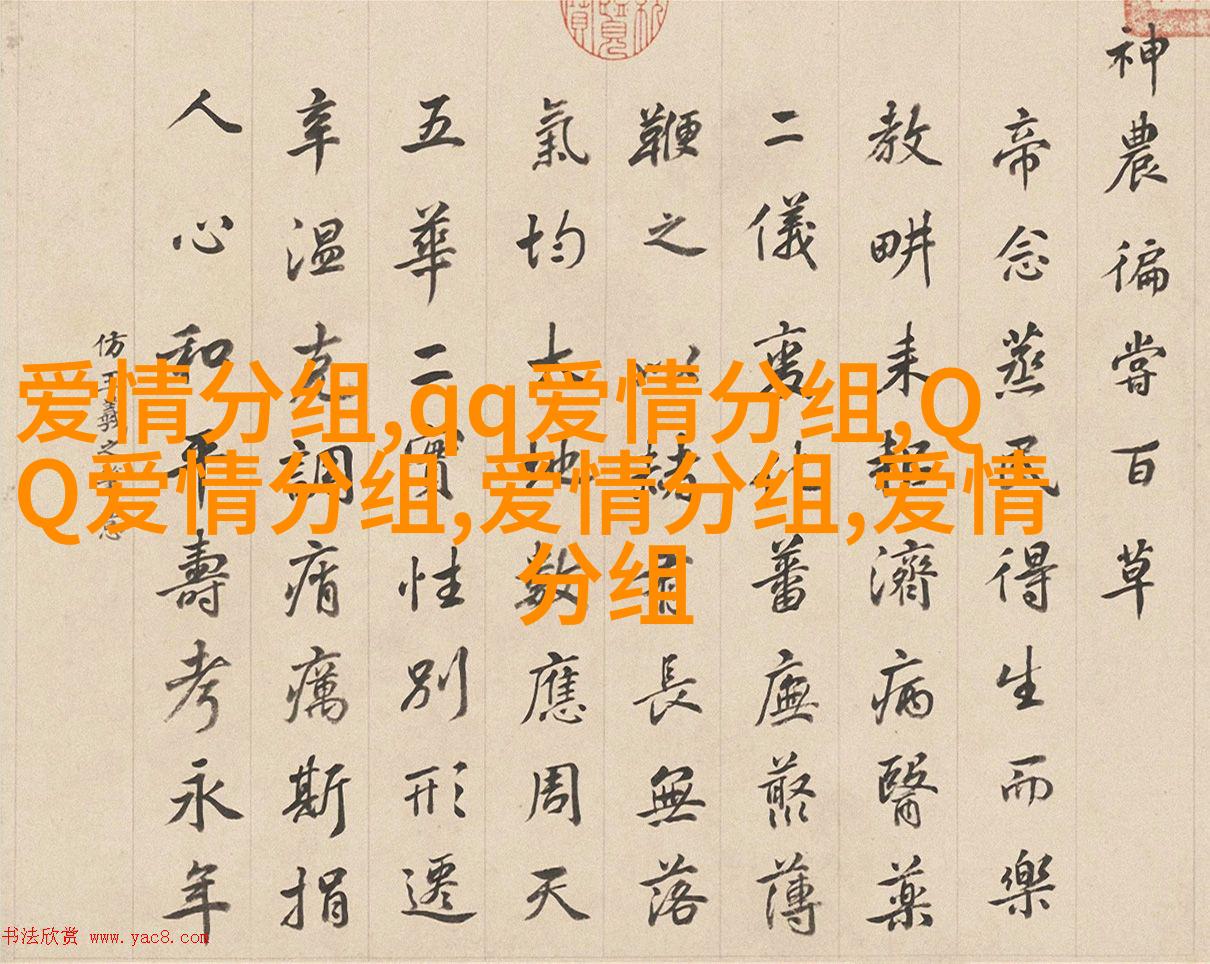 神農徧嘗百草
帝念蒸民得生而樂
教畊耒耜濟病醫藥
二儀變化蕃廡藂薄
鞭之以赭有長無落
氣均大地數應周天
五華二實性別形遷
辛温克調痟癘斯捐
人心和平壽考永年
仿王羲之筆意
爱情分组,qq爱情分组,Q
Q爱情分组,爱情分组,爱情
分组
书法欣赏 www.yac8.com